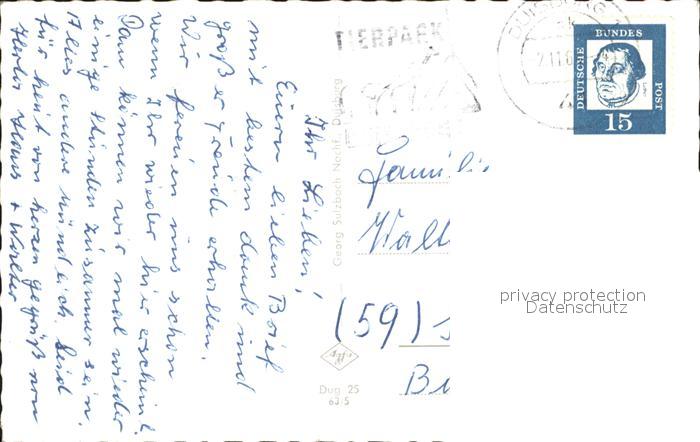 Ihr Lieben!
Euren lieben Brief
mit bestem dank und
großer freude erhalten.
Wir freuen uns schon
wenn Ihr wieder hier erscheint
Dann können wir mal wieder
einige Stunden zusammen sein.
Alles andere mündlich. Seid
für heut von herzen gegrüßt von
Georg Sulzbach Nachf., Duisburg
Agfa
Dug 25
63/5
TIERPARK
DUISBURG
DEUTSCHE BUNDESPOST
15
Famili
Walt
(59)
privacy protection
Datenschutz